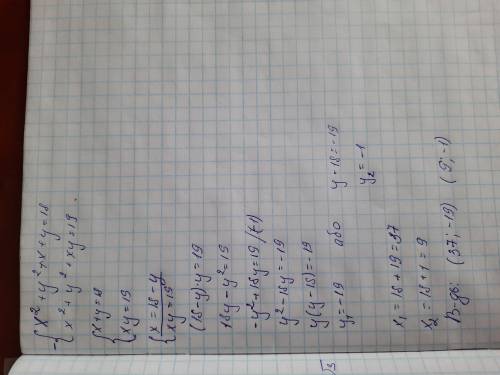 - { x² + y² + x + y = 18
x² + y² + xy = 19.
{ x + y = 18
xy = 19
{ x = 18 - y
xy = 19
(18 - y) · y = 19
18y - y² = 19
-y² + 18y = 19 / (-1)
y² - 18y = -19
y(y - 18) = -19
y₁ = -19 або y - 18 = -19
y₂ = -1
x₁ = 18 + 19 = 37
x₂ = 18 + 1 = 9
В-дь: (37; -19) (9; -1)
√3